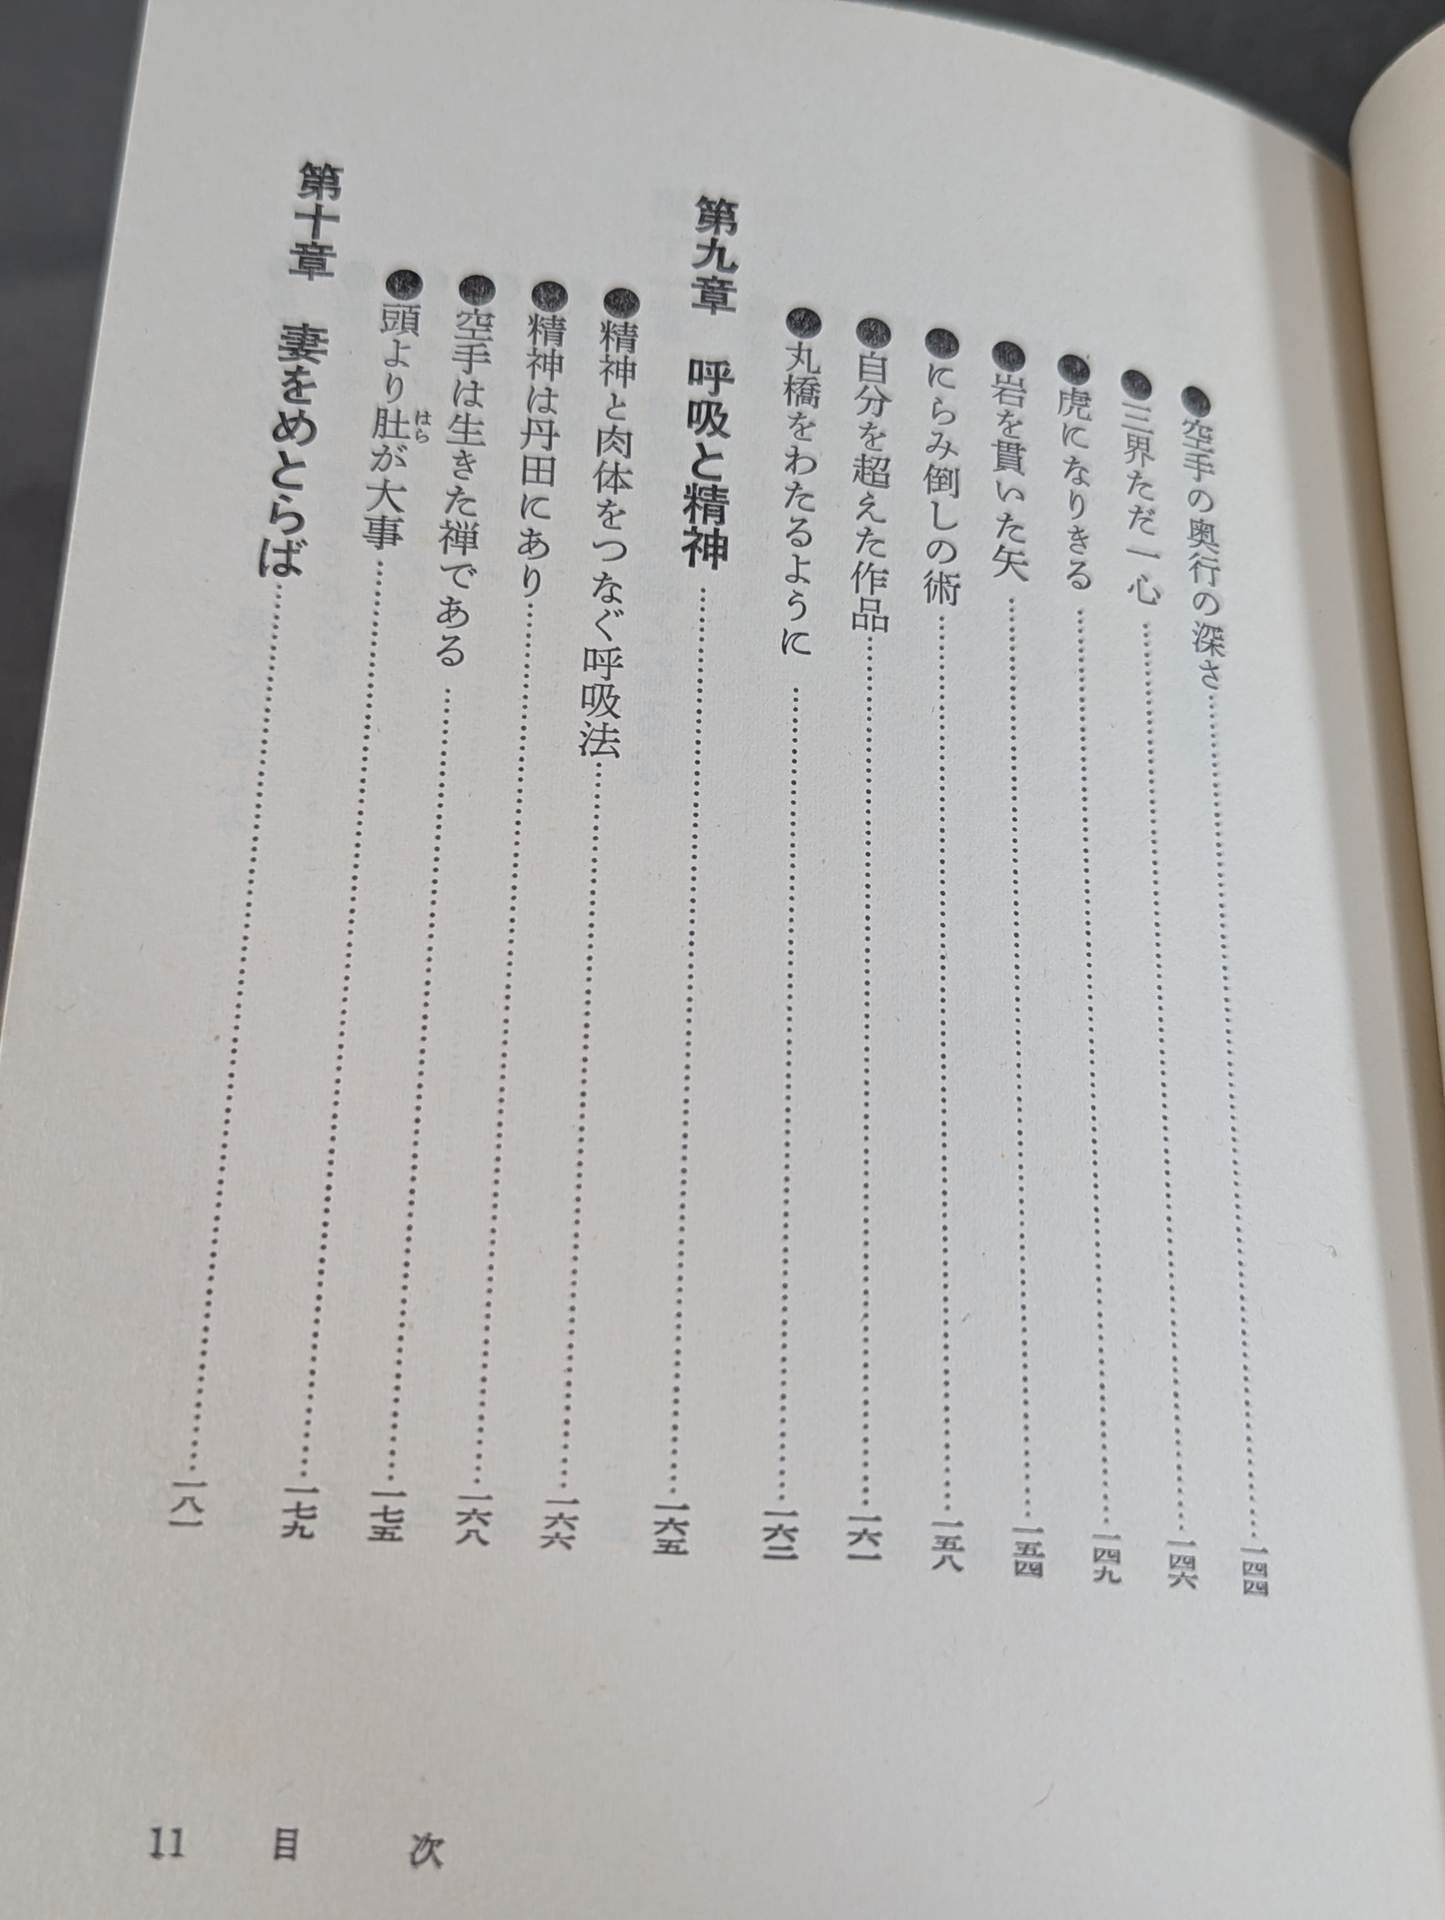 ●空手の奥行の深さ……一四四
●三界ただ一心……一四六
●虎になりきる……一四九
●岩を貫いた矢……一五四
●にらみ倒しの術……一五八
●自分を超えた作品……一六一
●丸橋をわたるように……一六二
第九章　呼吸と精神……一六五
●精神と肉体をつなぐ呼吸法……一六六
●精神は丹田にあり……一六八
●空手は生きた禅である……一七五
●頭より肚が大事……一七九
はら
第十章　妻をめとらば……一八一
11　目　次